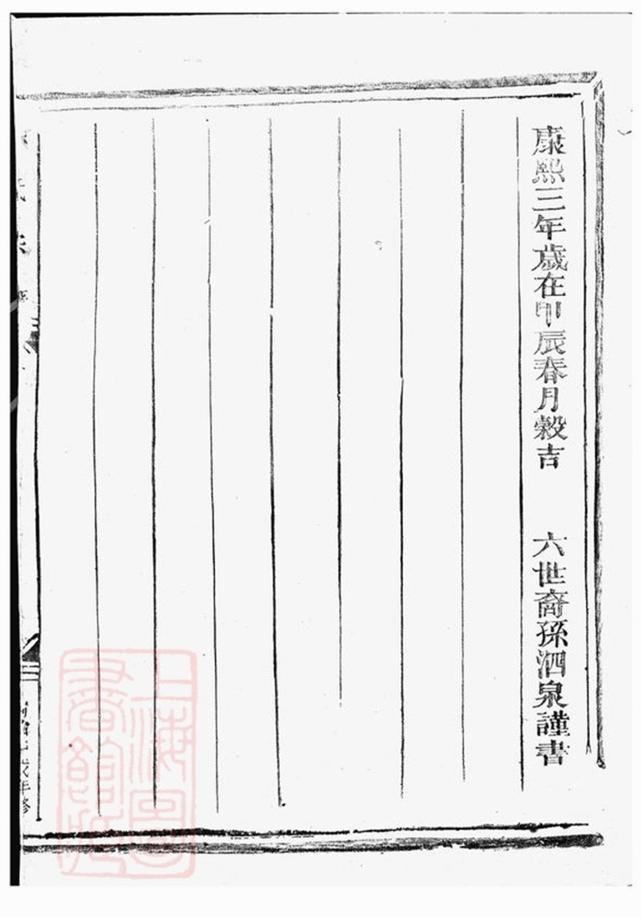 康熙三年歲在甲辰春月穀吉　六世裔孫泗泉謹書
上海圖書館藏